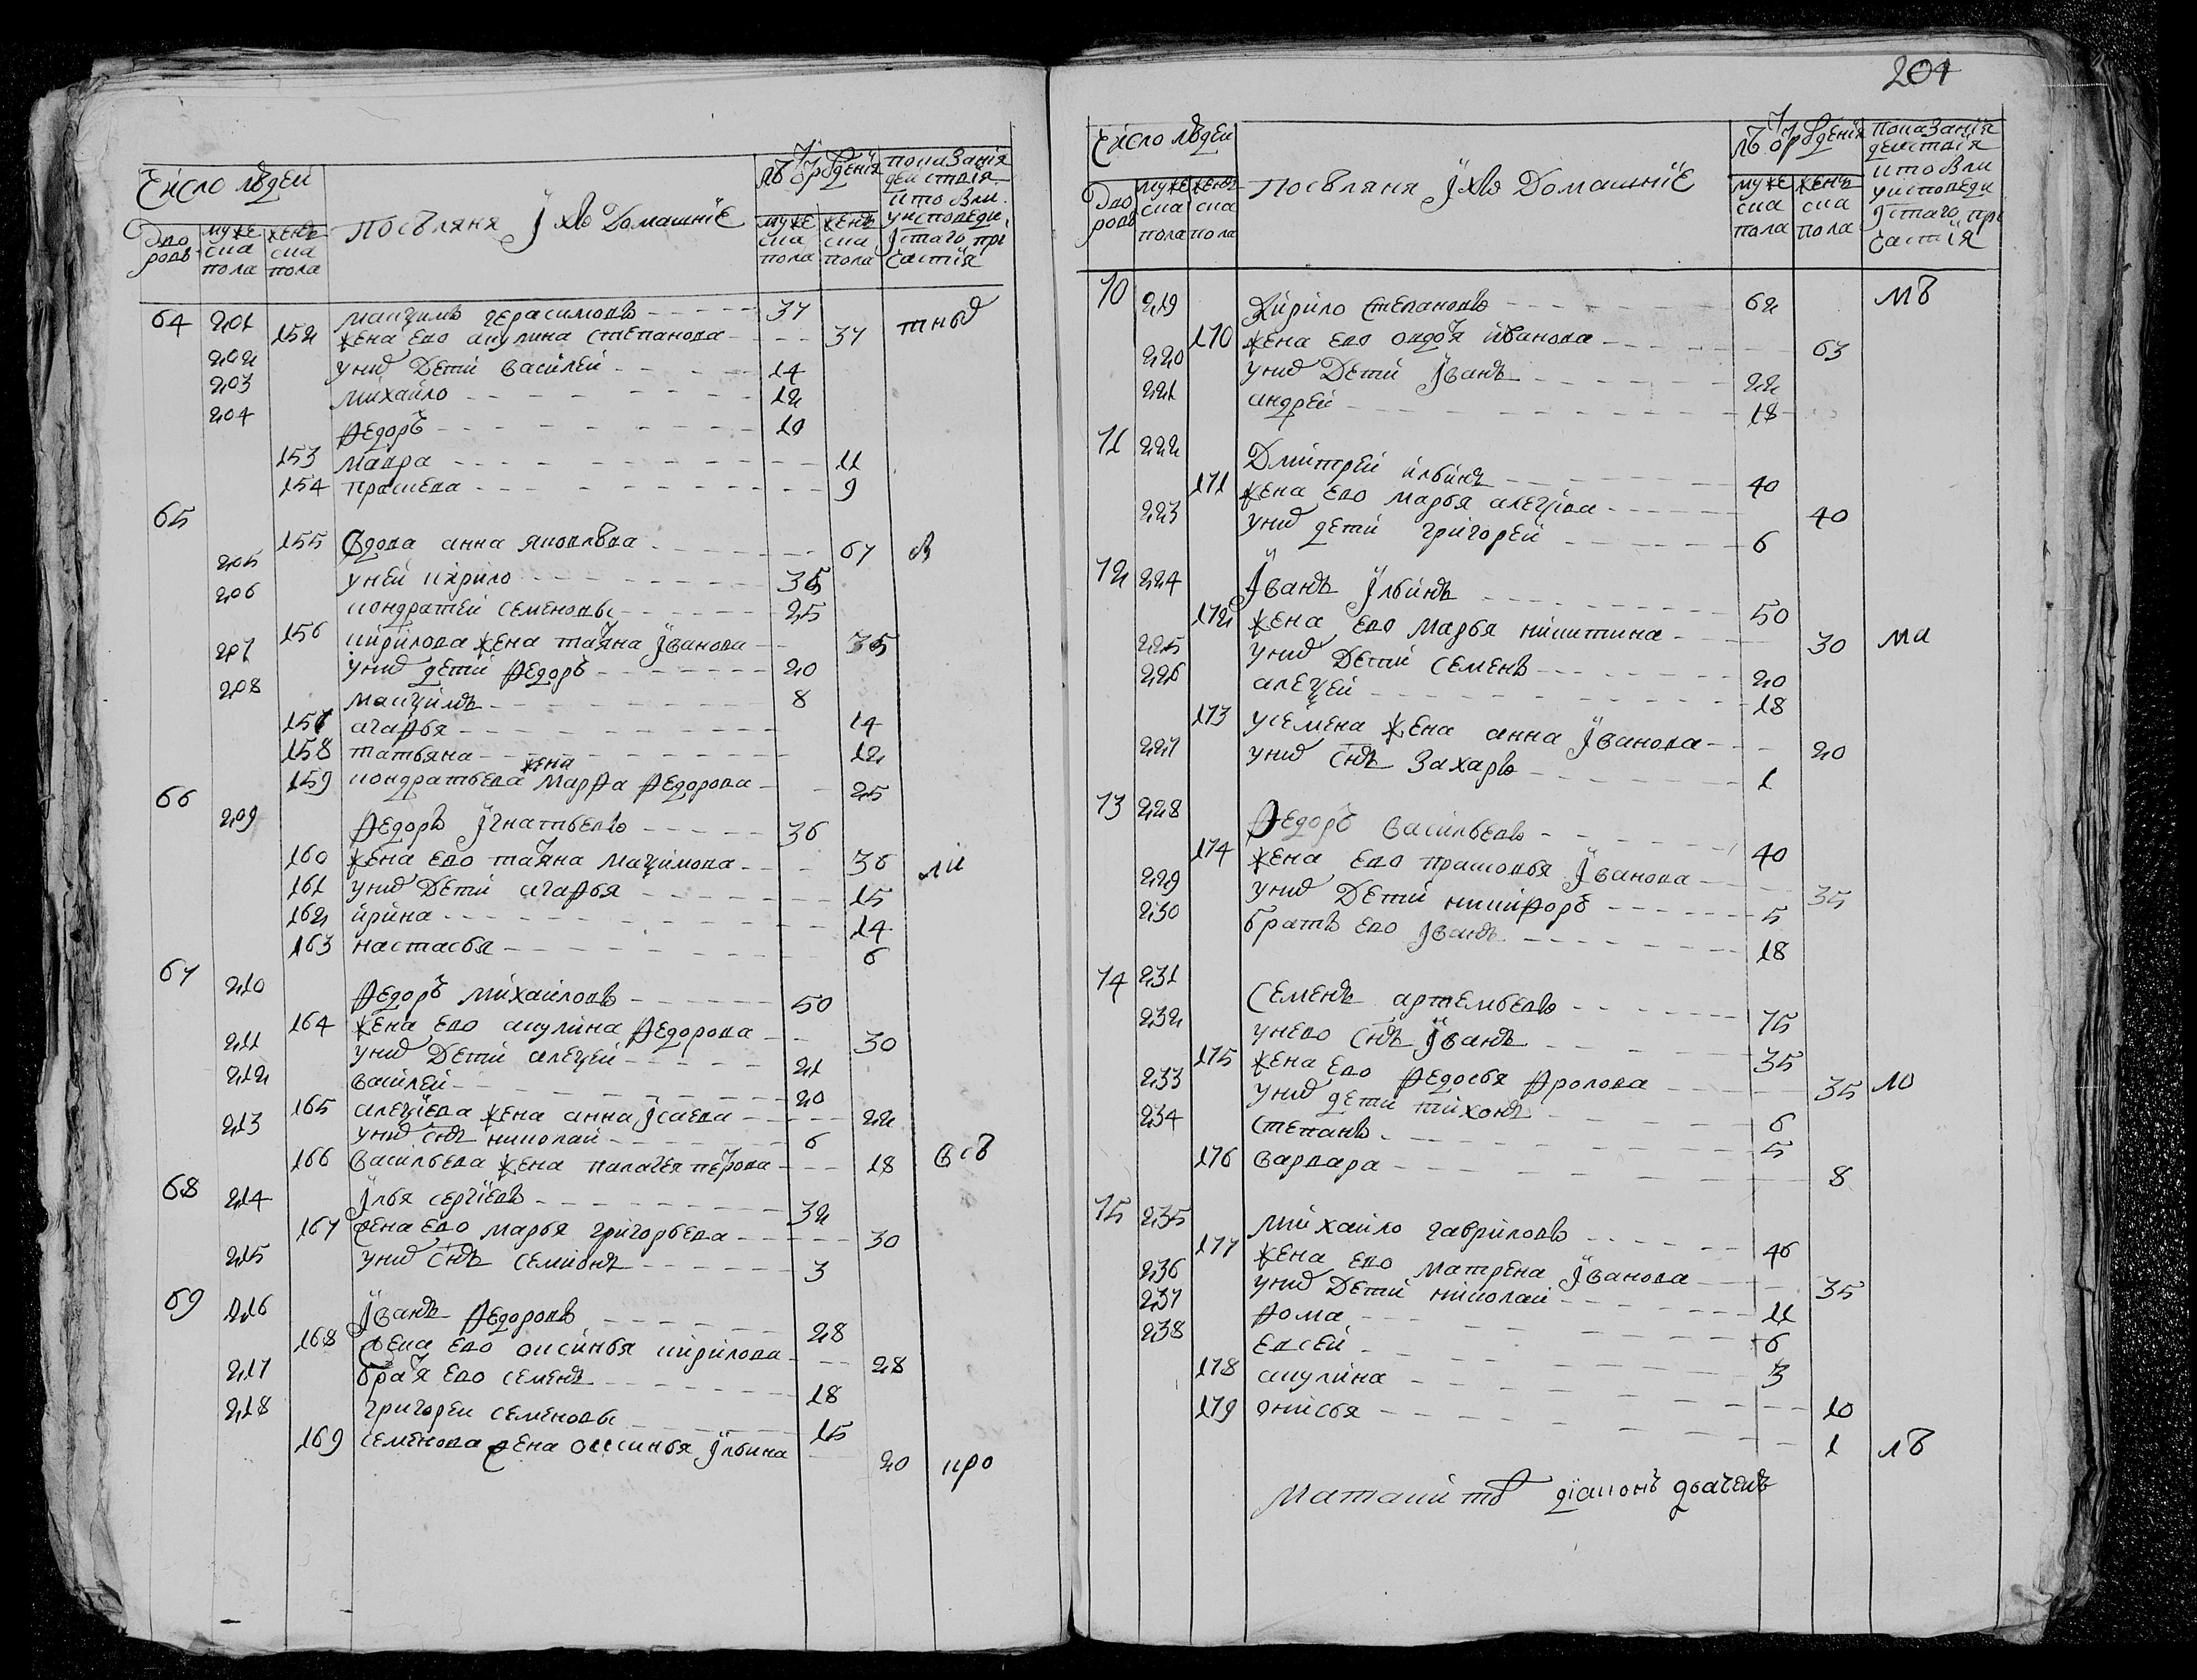 Число людей
Дворовъ
мужеска пола
женска пола
Посѣляня и ихъ домашние
лѣта от рождения
мужеска пола
женска пола
Показания действия кто был у исповеди и с[вя]таго причастия
64 201 Максимъ Герасимовъ 37
152 жена ево Акулина Степанова 37
202 у них дети Василей 14
203 Михайло 12
204 Федоръ 10
153 Мавра 11
154 Прасева 9
65
155 Вдова Анна Яковлева 67
205 у ней Кирило 35
206 Кондратей Семеновы 25
156 Кирилова жена Татяна Иванова 35
207 у них дети Федоръ 20
208 Максимъ 8
157 Агафья 14
158 Татьяна 12
159 Кондратьева жена Марфа Федорова 25
66
209 Федоръ Игнатьевъ 36
160 жена ево Татяна Максимова 36
161 у них дети Агафья 15
162 Ирина 14
163 Настасья 6
67
210 Федоръ Михайловъ 50
164 жена ево Акулина Федорова 30
211 у них дети Алексей 21
212 Василей 20
165 Алексиева жена Анна Исаева 22
213 у них снъ Николай 6
166 Васильева жена Палагея Петрова 18
68
214 Илья Сергиевъ 32
167 жена ево Марья Григорьева 30
215 у них снъ Семионъ 3
69 216 Иванъ Федоровъ 28
168 жена ево Оксинья Кирилова 28
217 братя ево Семенъ 18
218 Григореи Семеновы 15
169 Семенова жена Оксинья Ильина 20
204
Число людей
Дворовъ
мужеска пола
женска пола
Посѣляня и ихъ домашние
лѣта от рождения
мужеска пола
женска пола
Показания действия кто был у исповеди и с[вя]таго причастия
70 219 Кирило Степановъ 62
170 жена ево Овдотя Иванова 63
220 у них дети Иванъ 22
221 Андрей 18
71 222 Дмитрей Ильинъ 40
171 жена ево Марья Алексиева 40
223 у них дети Григорей 6
72 224 Иванъ Ильинъ 50
172 жена ево Марья Никитина 30
225 у них дети Семенъ 20
226 Алексей 18
173 у Семена жена Анна Иванова 20
227 у них снъ Захаръ 1
73 228 Федоръ Васильевъ 40
174 жена ево Прасковья Иванова 35
229 у них дети Никифоръ 5
230 братъ ево Иванъ 18
74 231 Семенъ Артемьевъ 75
232 у нево снъ Иванъ 35
175 жена ево Федосья Фролова 35
233 у них дети Тихонъ 6
234 Степанъ 5
176 Варвара 8
75 235 Михайло Гавриловъ 46
177 жена ево Матрена Иванова 35
236 у них дети Николай 11
237 Фома 6
238 Евсей 3
178 Акулина 10
179 Онисья 1